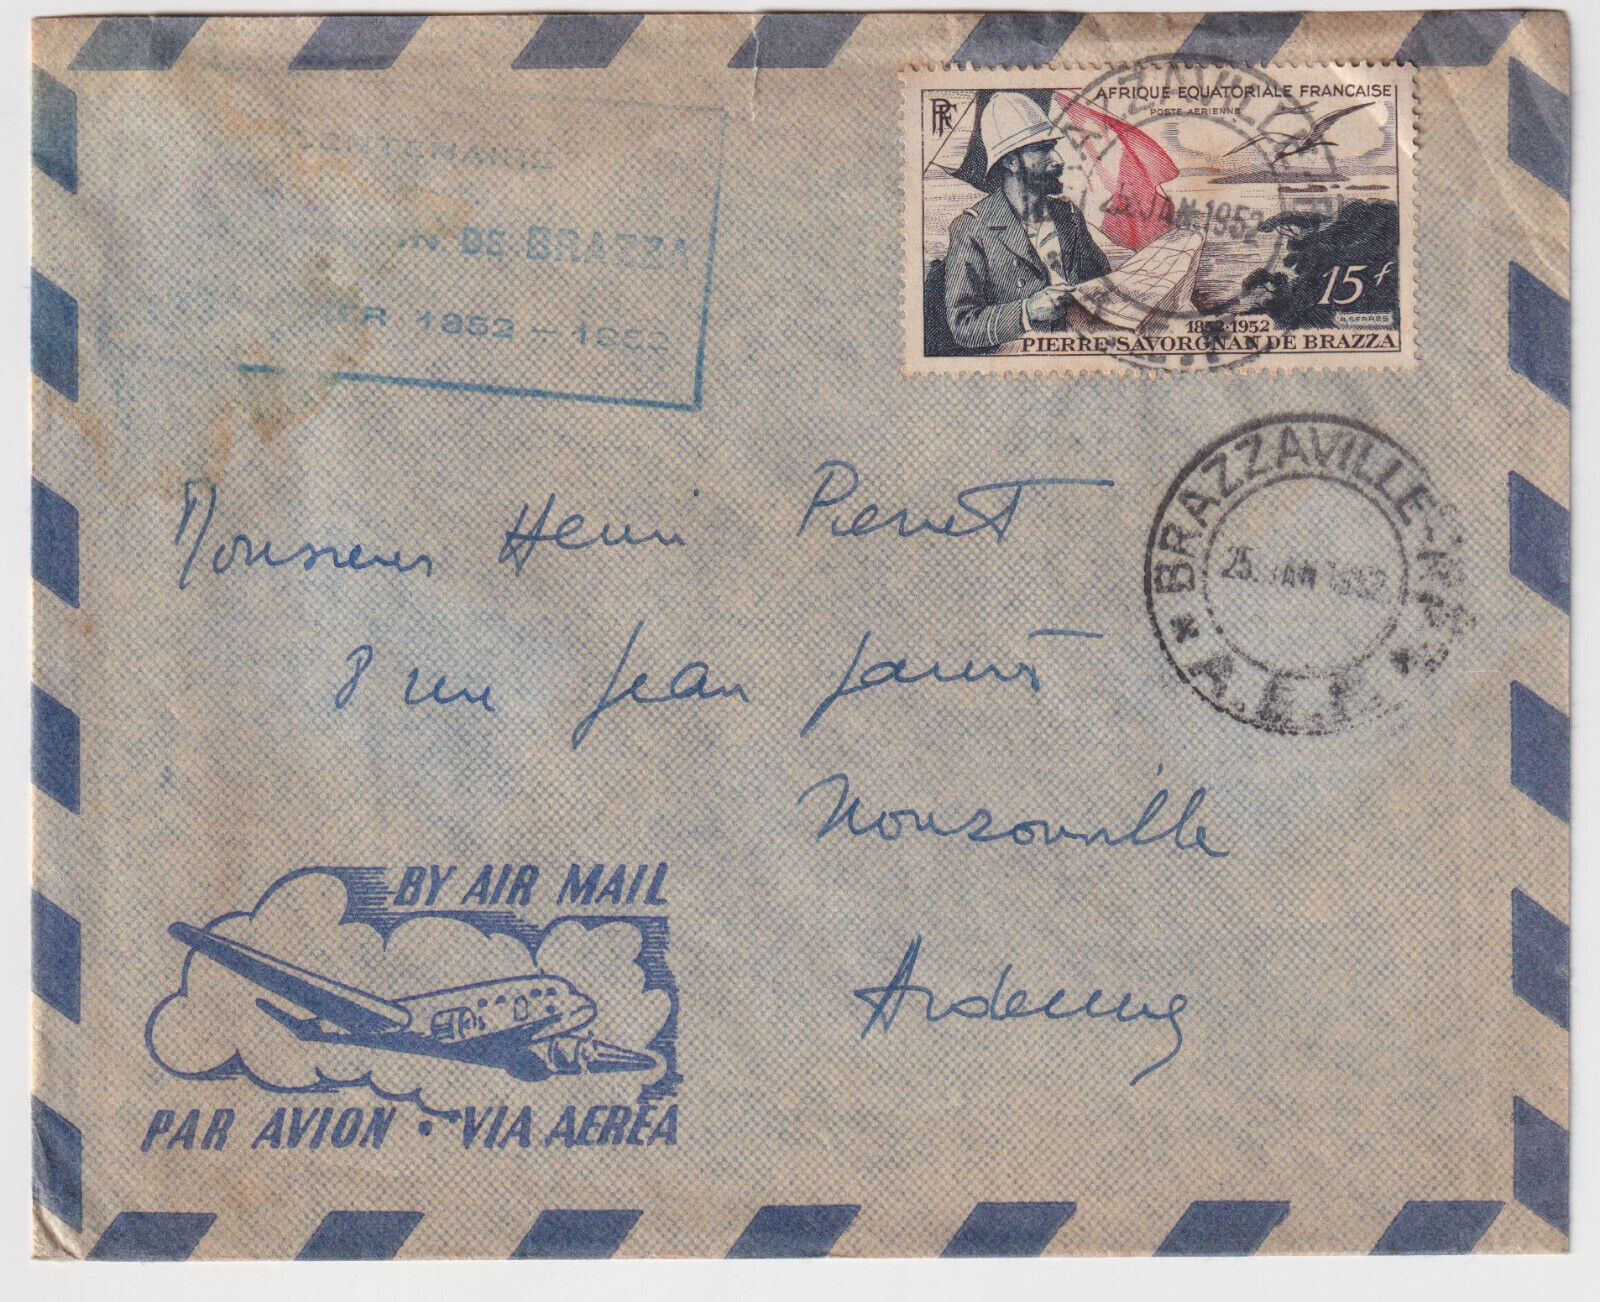 CENTENAIRE
DE BRAZZA
1852 - 1952
RF
AFRIQUE EQUATORIALE FRANCAISE
POSTE AERIENNE
15f
R. SERRES
1852-1952
PIERRE SAVORGNAN DE BRAZZA
BRAZZAVILLE
25 JAN. 1952
BRAZZAVILLE-R.P.
25 JAN 1952
A.E.F.
Monsieur Henri Pierret
8 rue Jean Jaurès
Nouzonville
Ardennes
BY AIR MAIL
PAR AVION • VIA AEREA